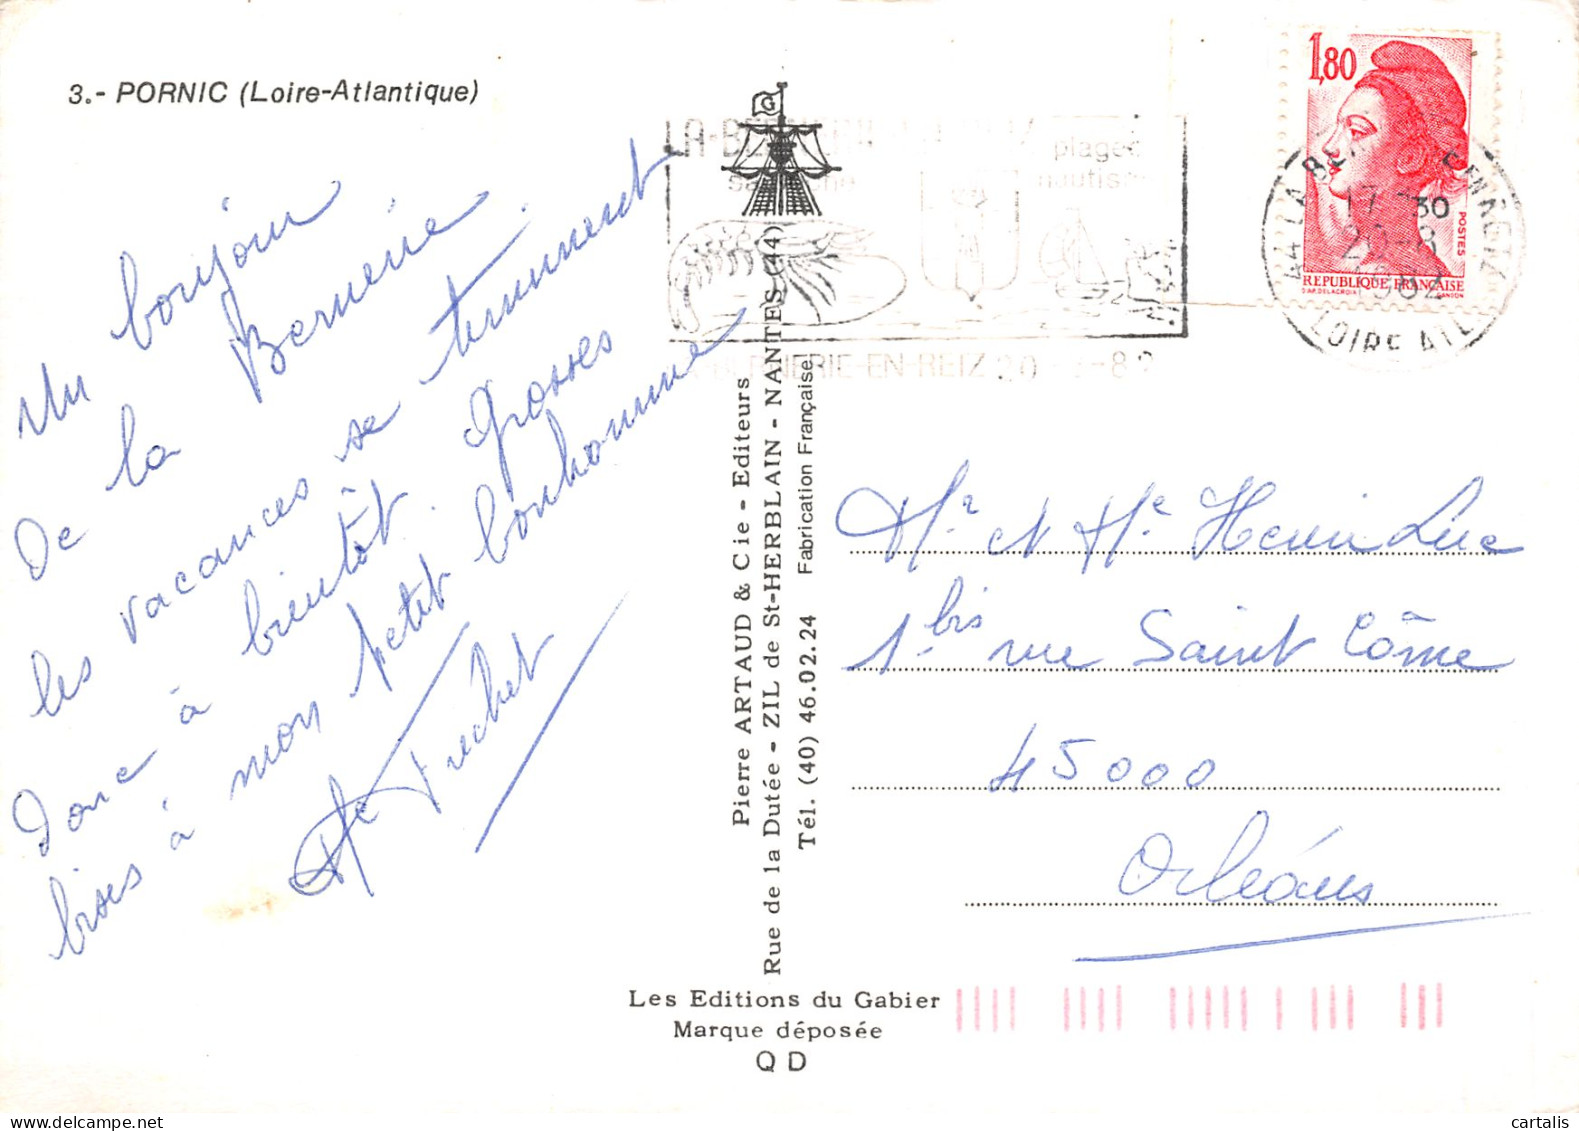 3.- PORNIC (Loire-Atlantique)
Un bonjour
De la Bernerie.
les vacances se terminent
donc à bientôt. Grosses
bises à mon petit bonhomme
G
plages
nautis
BERNERIE-EN-RETZ 20
1,80
POSTES
REPUBLIQUE FRANÇAISE
17-30
20-8
1982
LOIRE ATL
Pierre ARTAUD & Cie - Editeurs
Rue de la Dutée - ZIL de St-HERBLAIN - NANTES (44)
Tél. (40) 46.02.24 Fabrication Française
Mr et Me Henri Luc
1bis rue Saint Côme
45000
Orléans
Les Editions du Gabier
Marque déposée
Q D
cartalis